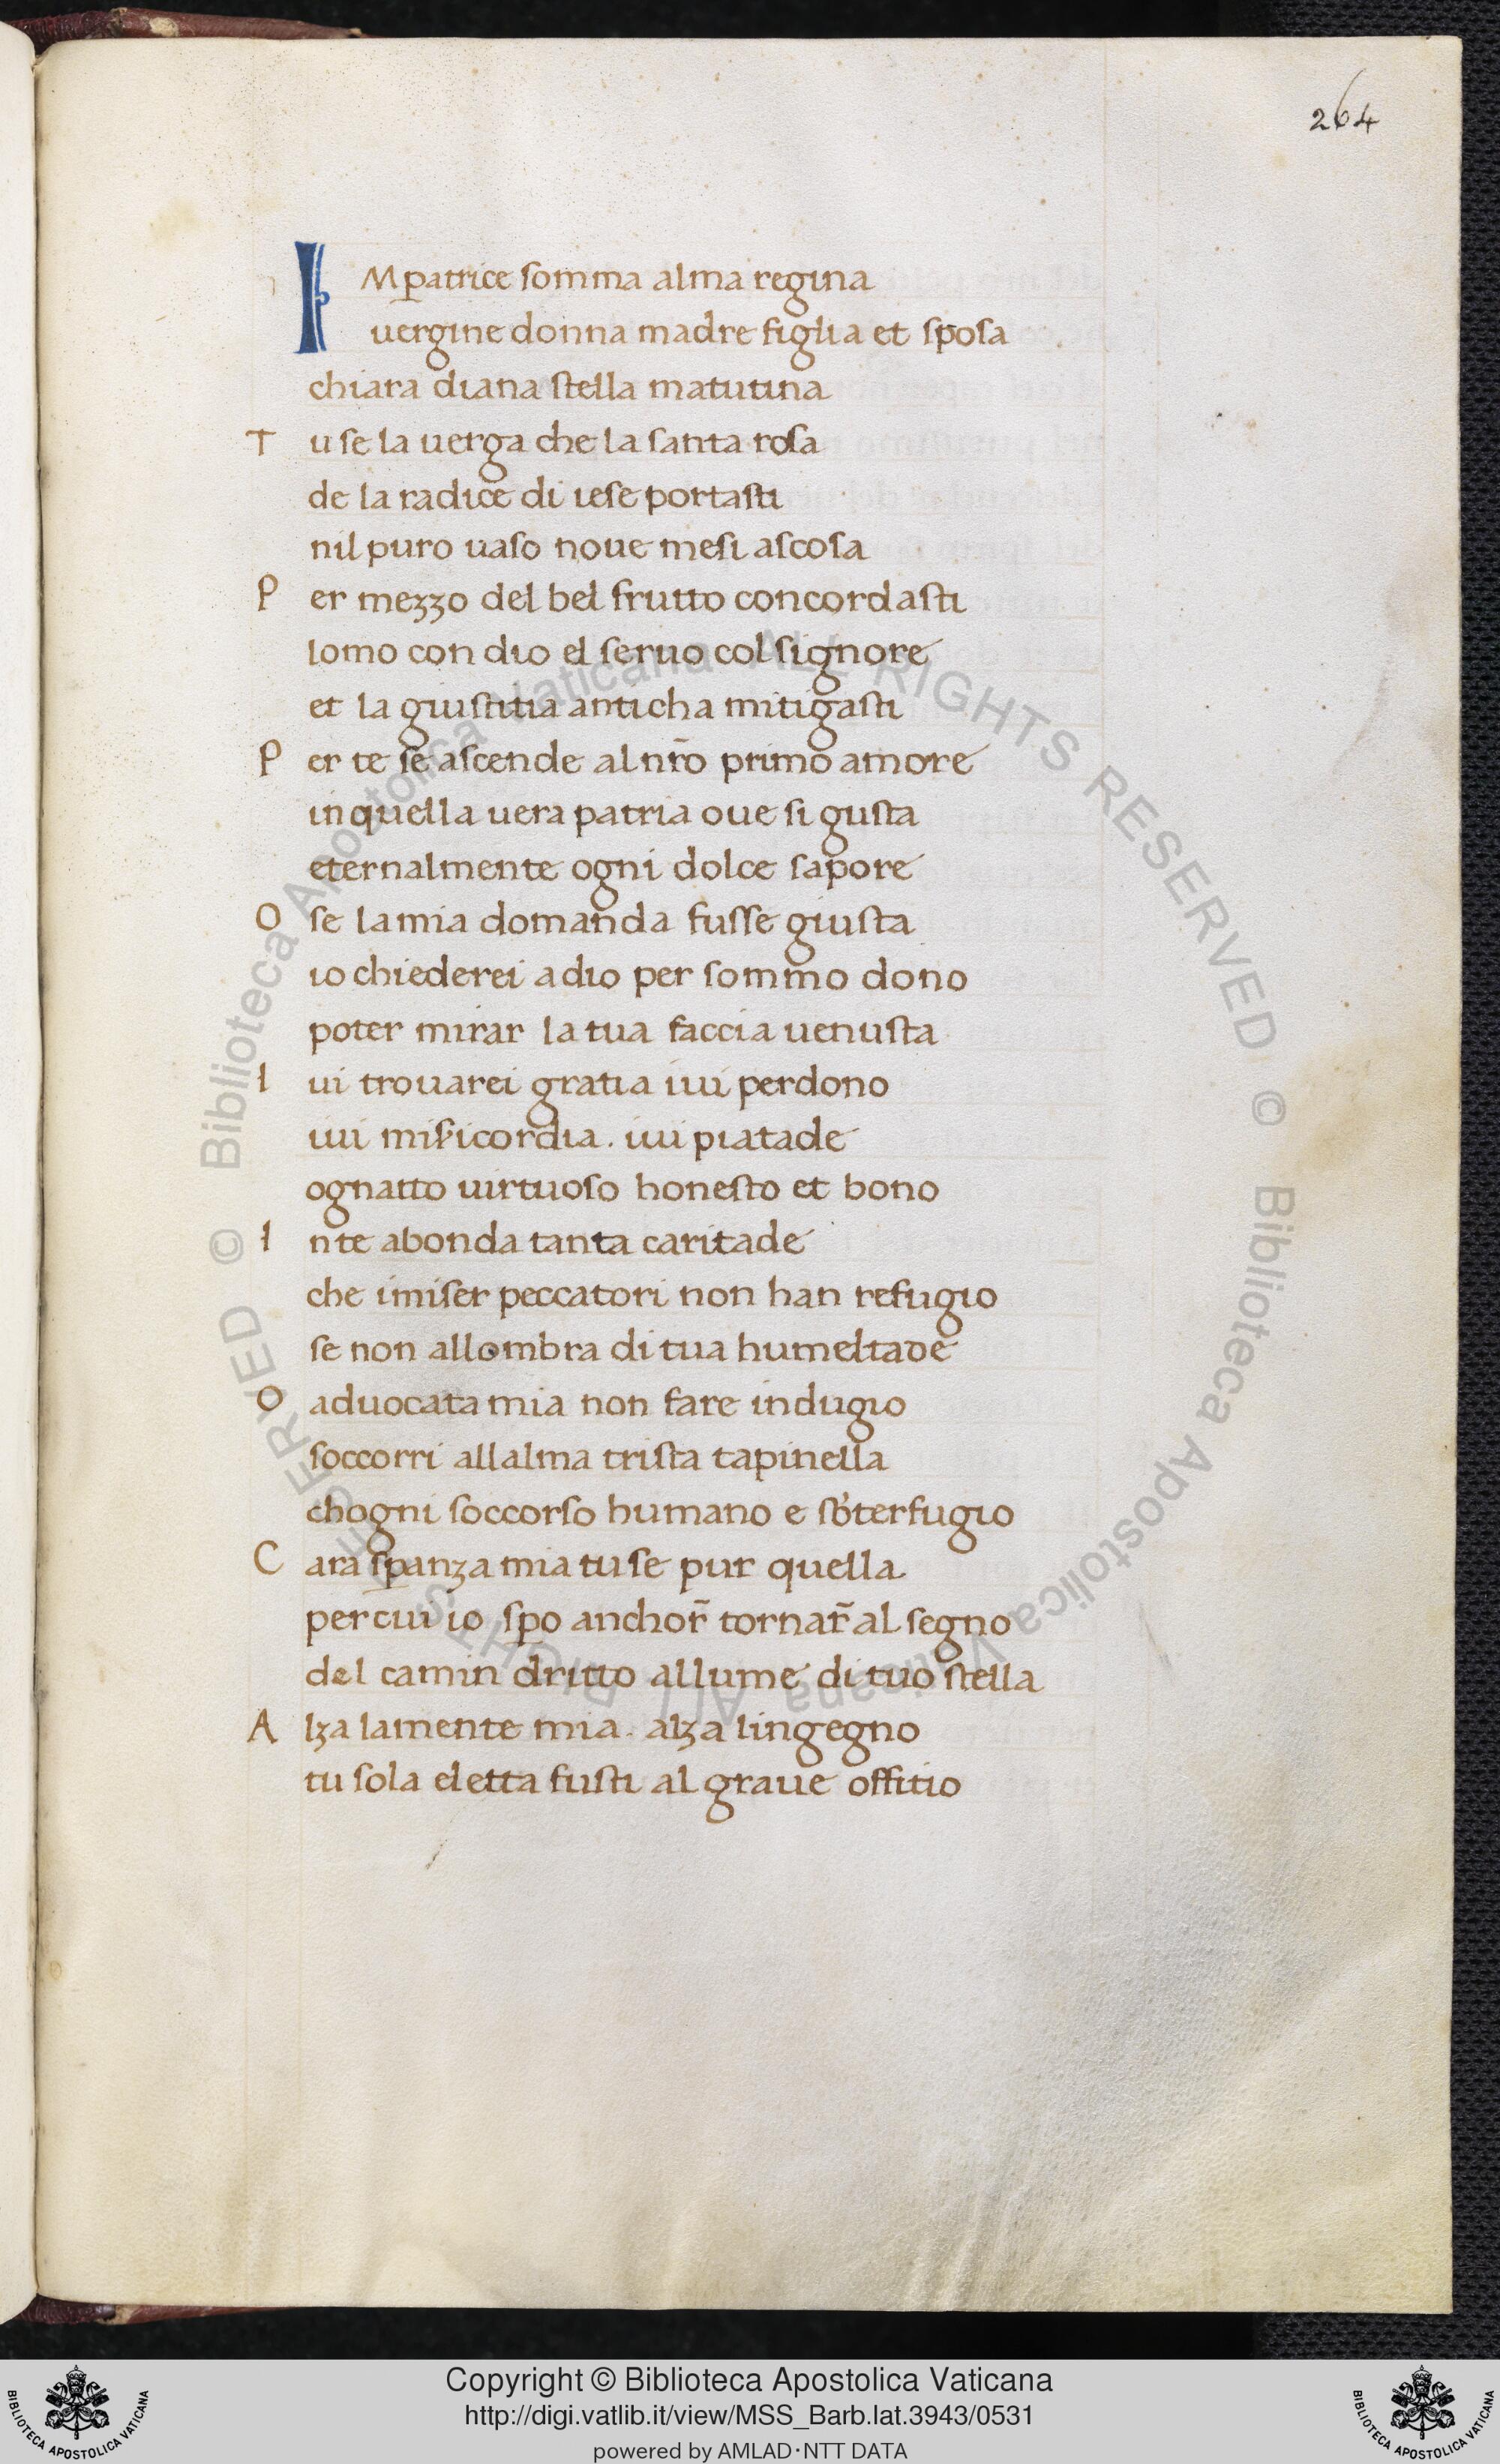 264
IMꝑatrice somma alma regina
uergine donna madre figlia et sposa
chiara diana stella matutina
Tu se la uerga che la santa rosa
de la radice di iese portasti
nil puro uaso noue mesi ascosa
Per mezzo del bel frutto concordasti
lomo con dio el seruo col signore
et la giustitia anticha mitigasti
Per te se ascende al nr̃o primo amore
in quella uera patria oue si gusta
eternalmente ogni dolce sapore
O se la mia domanda fusse giusta
io chiederei a dio per sommo dono
poter mirar la tua faccia uenusta
Iui trouarei gratia iui perdono
iui mis̃icordia. iui piatade
ognatto uirtuoso honesto et bono
Inte abonda tanta caritade
che i miser peccatori non han refugio
se non allombra di tua humeltade
O aduocata mia non fare indugio
soccorri allalma trista tapinella
chogni soccorso humano e sot̾terfugio
Cara sꝑanza mia tu se pur quella
per cui io sꝑo anchor̃ tornar̃ al segno
del camin dritto allume di tuo stella
Alza la mente mia. alza lingegno
tu sola eletta fusti al graue offitio
© Biblioteca Apostolica Vaticana ALL RIGHTS RESERVED © Biblioteca Apostolica Vaticana ALL RIGHTS RESERVED
Copyright © Biblioteca Apostolica Vaticana
http://digi.vatlib.it/view/MSS_Barb.lat.3943/0531
powered by AMLAD·NTT DATA
BIBLIOTECA APOSTOLICA VATICANA
BIBLIOTECA APOSTOLICA VATICANA